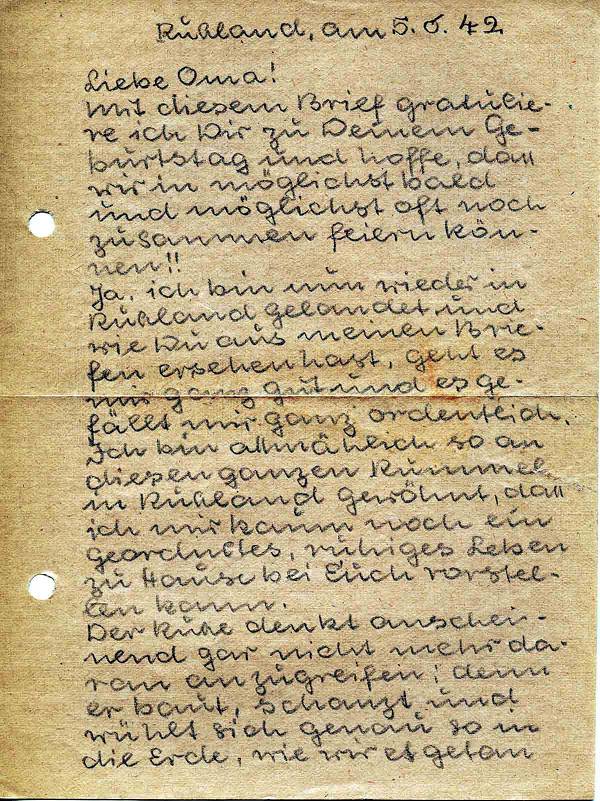 Rußland, am 5. 6. 42
Liebe Oma!
Mit diesem Brief gratulie-
re ich Dir zu Deinem Ge-
burtstag und hoffe, daß
wir in möglichst bald
und möglichst oft noch
zusammen feiern kön-
nen!!
Ja, ich bin nun wieder in
Rußland gelandet und
wie Du aus meinen Brie-
fen ersehen hast, geht es
mir ganz gut und es ge-
fällt mir ganz ordentlich.
Ich bin allmählich so an
diesen ganzen Rummel
in Rußland gewöhnt, daß
ich mir kaum noch ein
geordnetes, ruhiges Leben
zu Hause bei Euch vorstel-
len kann.
Der Ruße denkt anschei-
nend gar nicht mehr da-
ran anzugreifen; denn
er baut, schanzt und
wühlt sich genau so in
die Erde, wie wir es getan